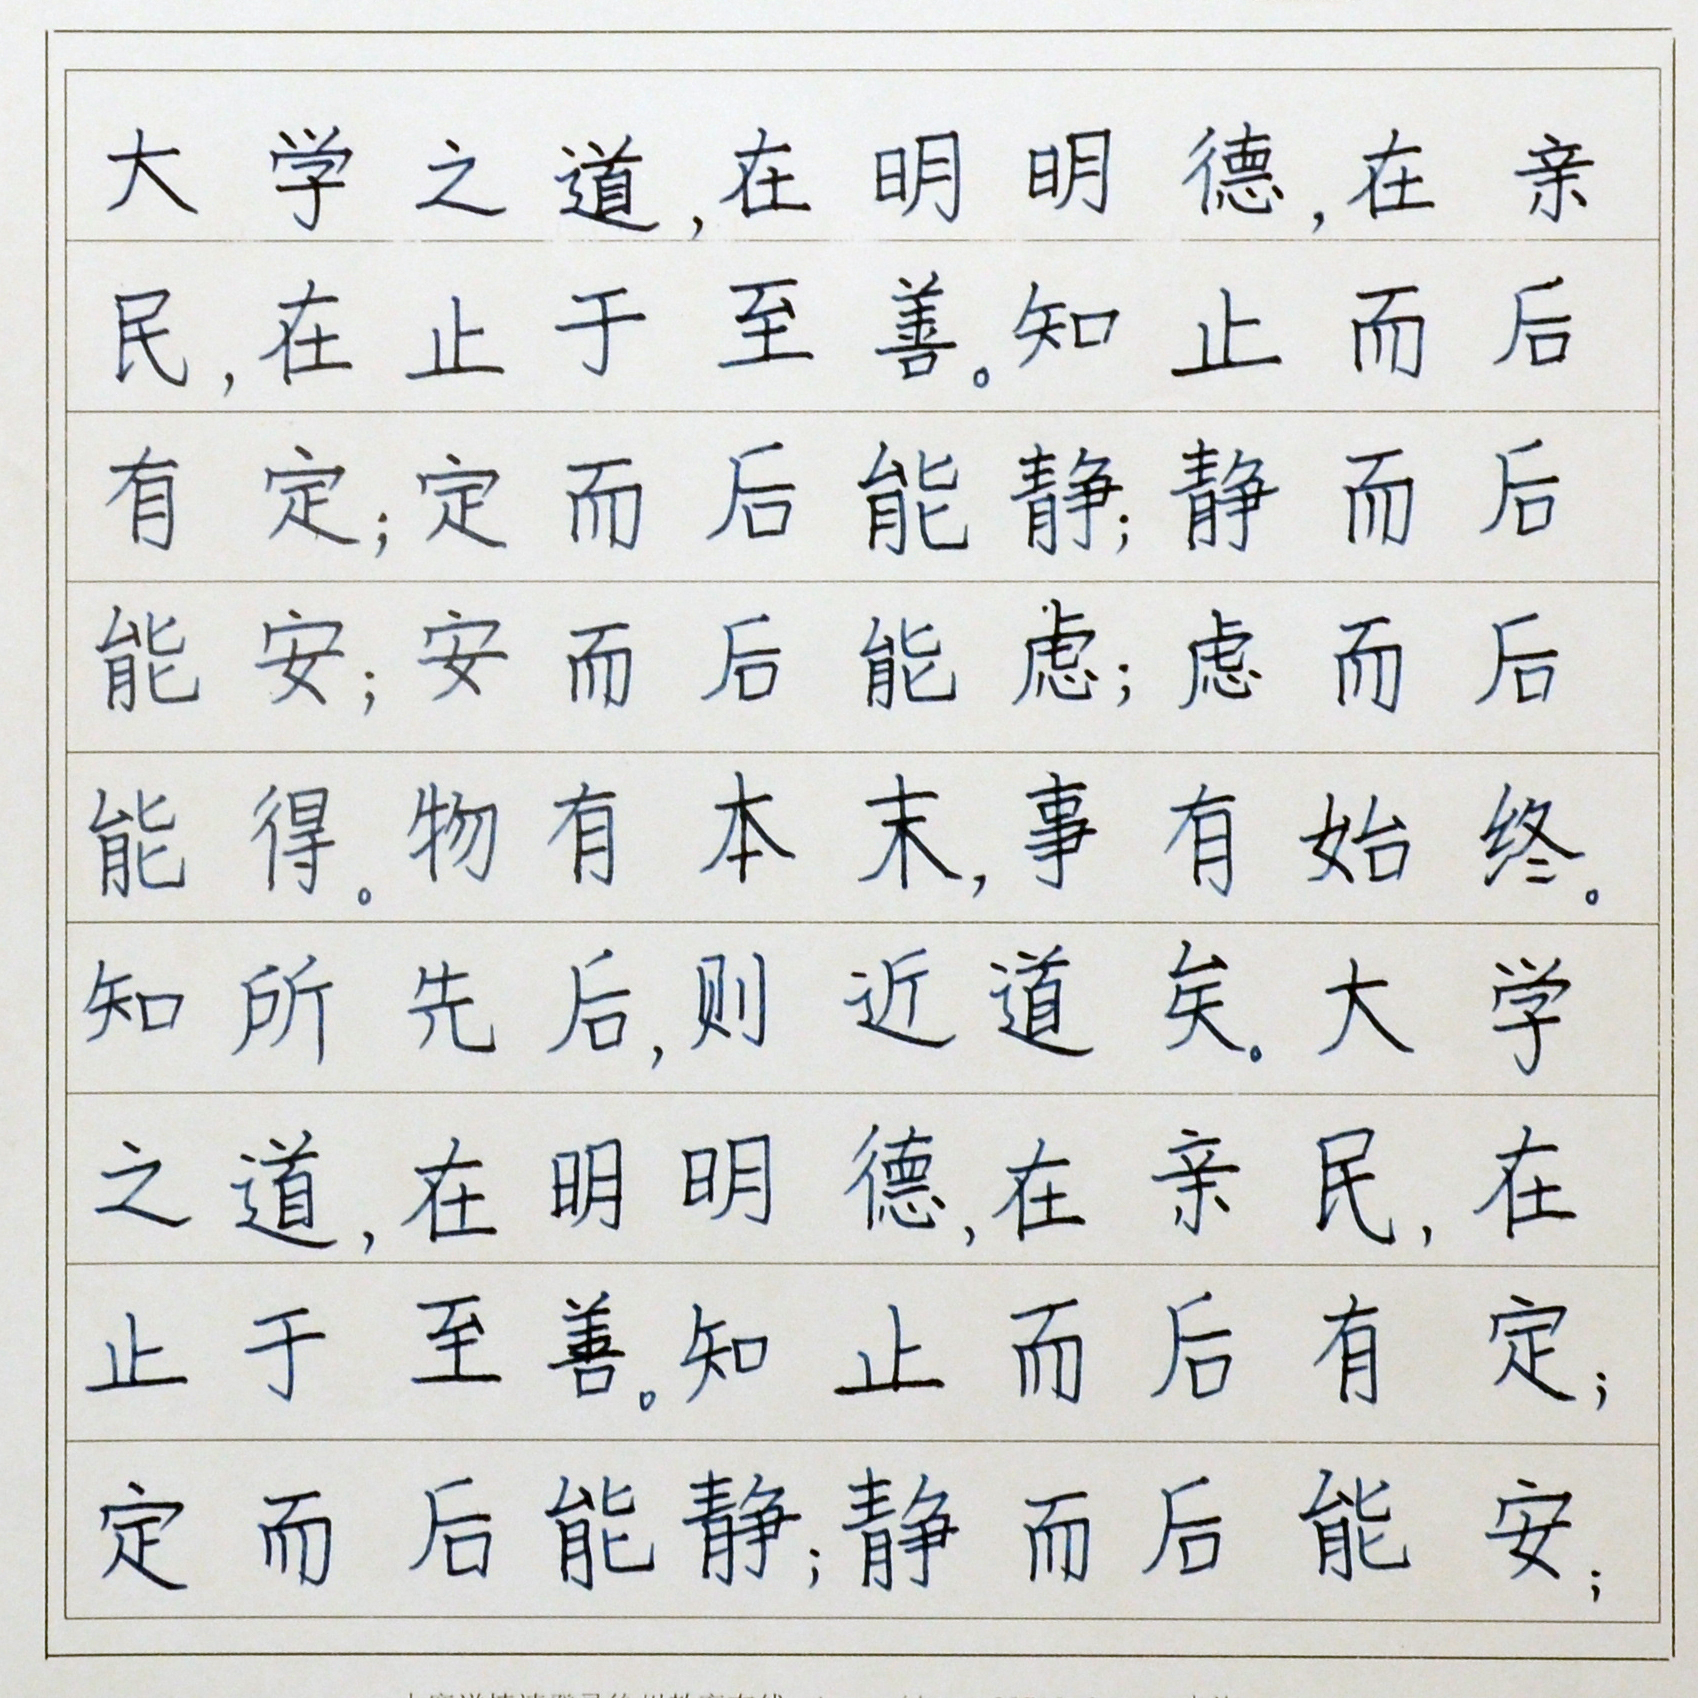 大学之道,在明明德,在亲
民,在止于至善。知止而后
有定;定而后能静;静而后
能安;安而后能虑;虑而后
能得。物有本末,事有始终。
知所先后,则近道矣。大学
之道,在明明德,在亲民,在
止于至善。知止而后有定;
定而后能静;静而后能安;